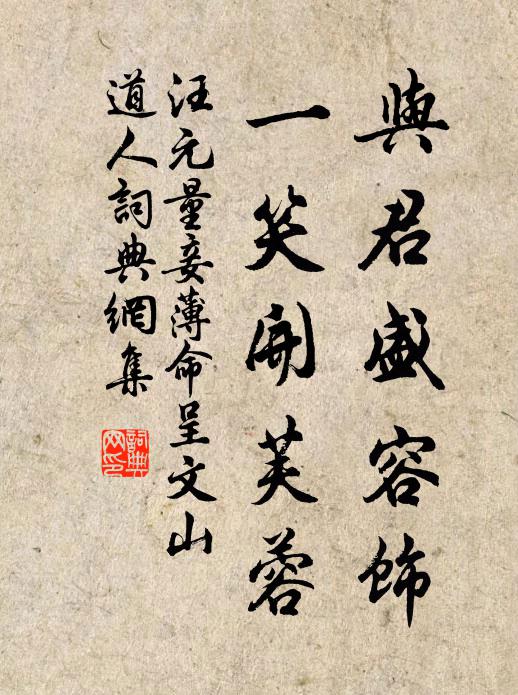 與君盛容飾
一笑開芙蓉
汪元量妾薄命呈文山
道人詞典網集
詞典
网印